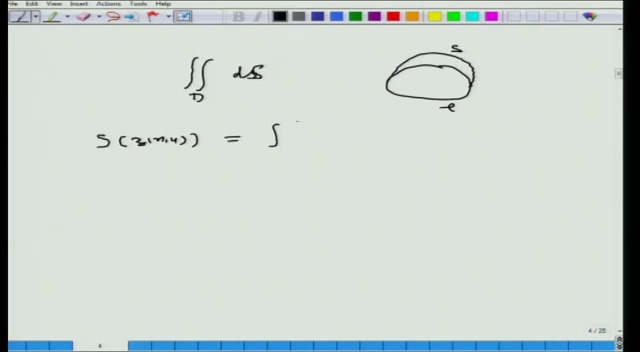 File Edit View Insert Actions Tools Help
B I
∬ dS
D
S
S(z,x,y) = ∫
4 / 25
4